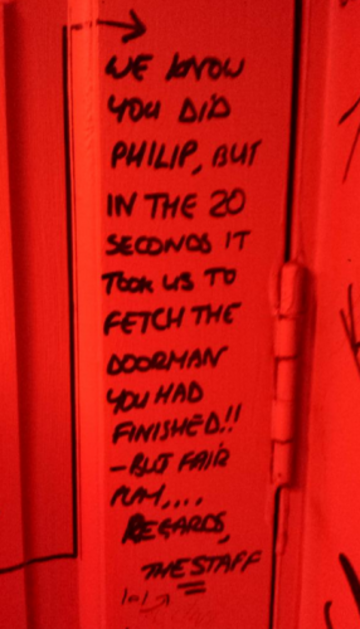 WE KNOW
YOU DID
PHILIP, BUT
IN THE 20
SECONDS IT
TOOK US TO
FETCH THE
DOORMAN
YOU HAD
FINISHED!!
- BUT FAIR
PLAY....
REGARDS,
THE STAFF
lol